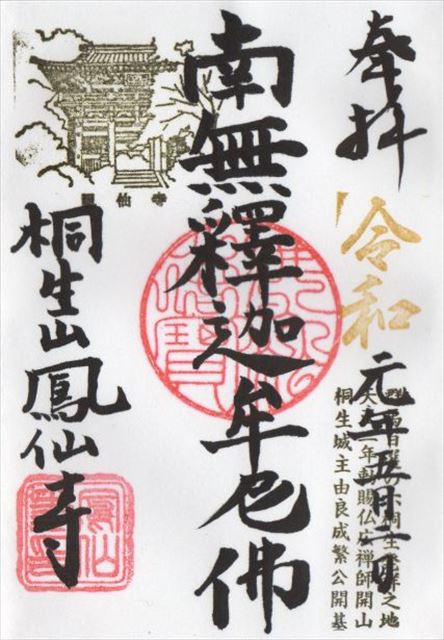 奉拝
令和元年五月一日
桐生 之地
年勅賜仏 禅師開山
桐生城主由良成繁公開基
南無釋迦牟尼佛
仙寺
桐生山鳳仙寺